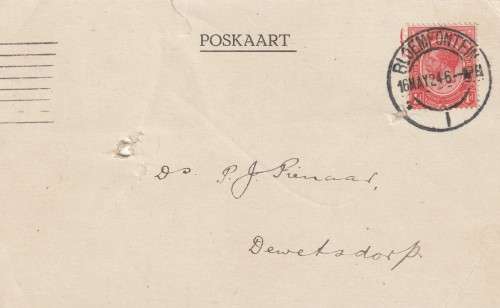 POSKAART
BLOEMFONTEIN
16 MAY 24 - 6.
1
Ds. P. J. Pienaar,
Dewetsdorp.